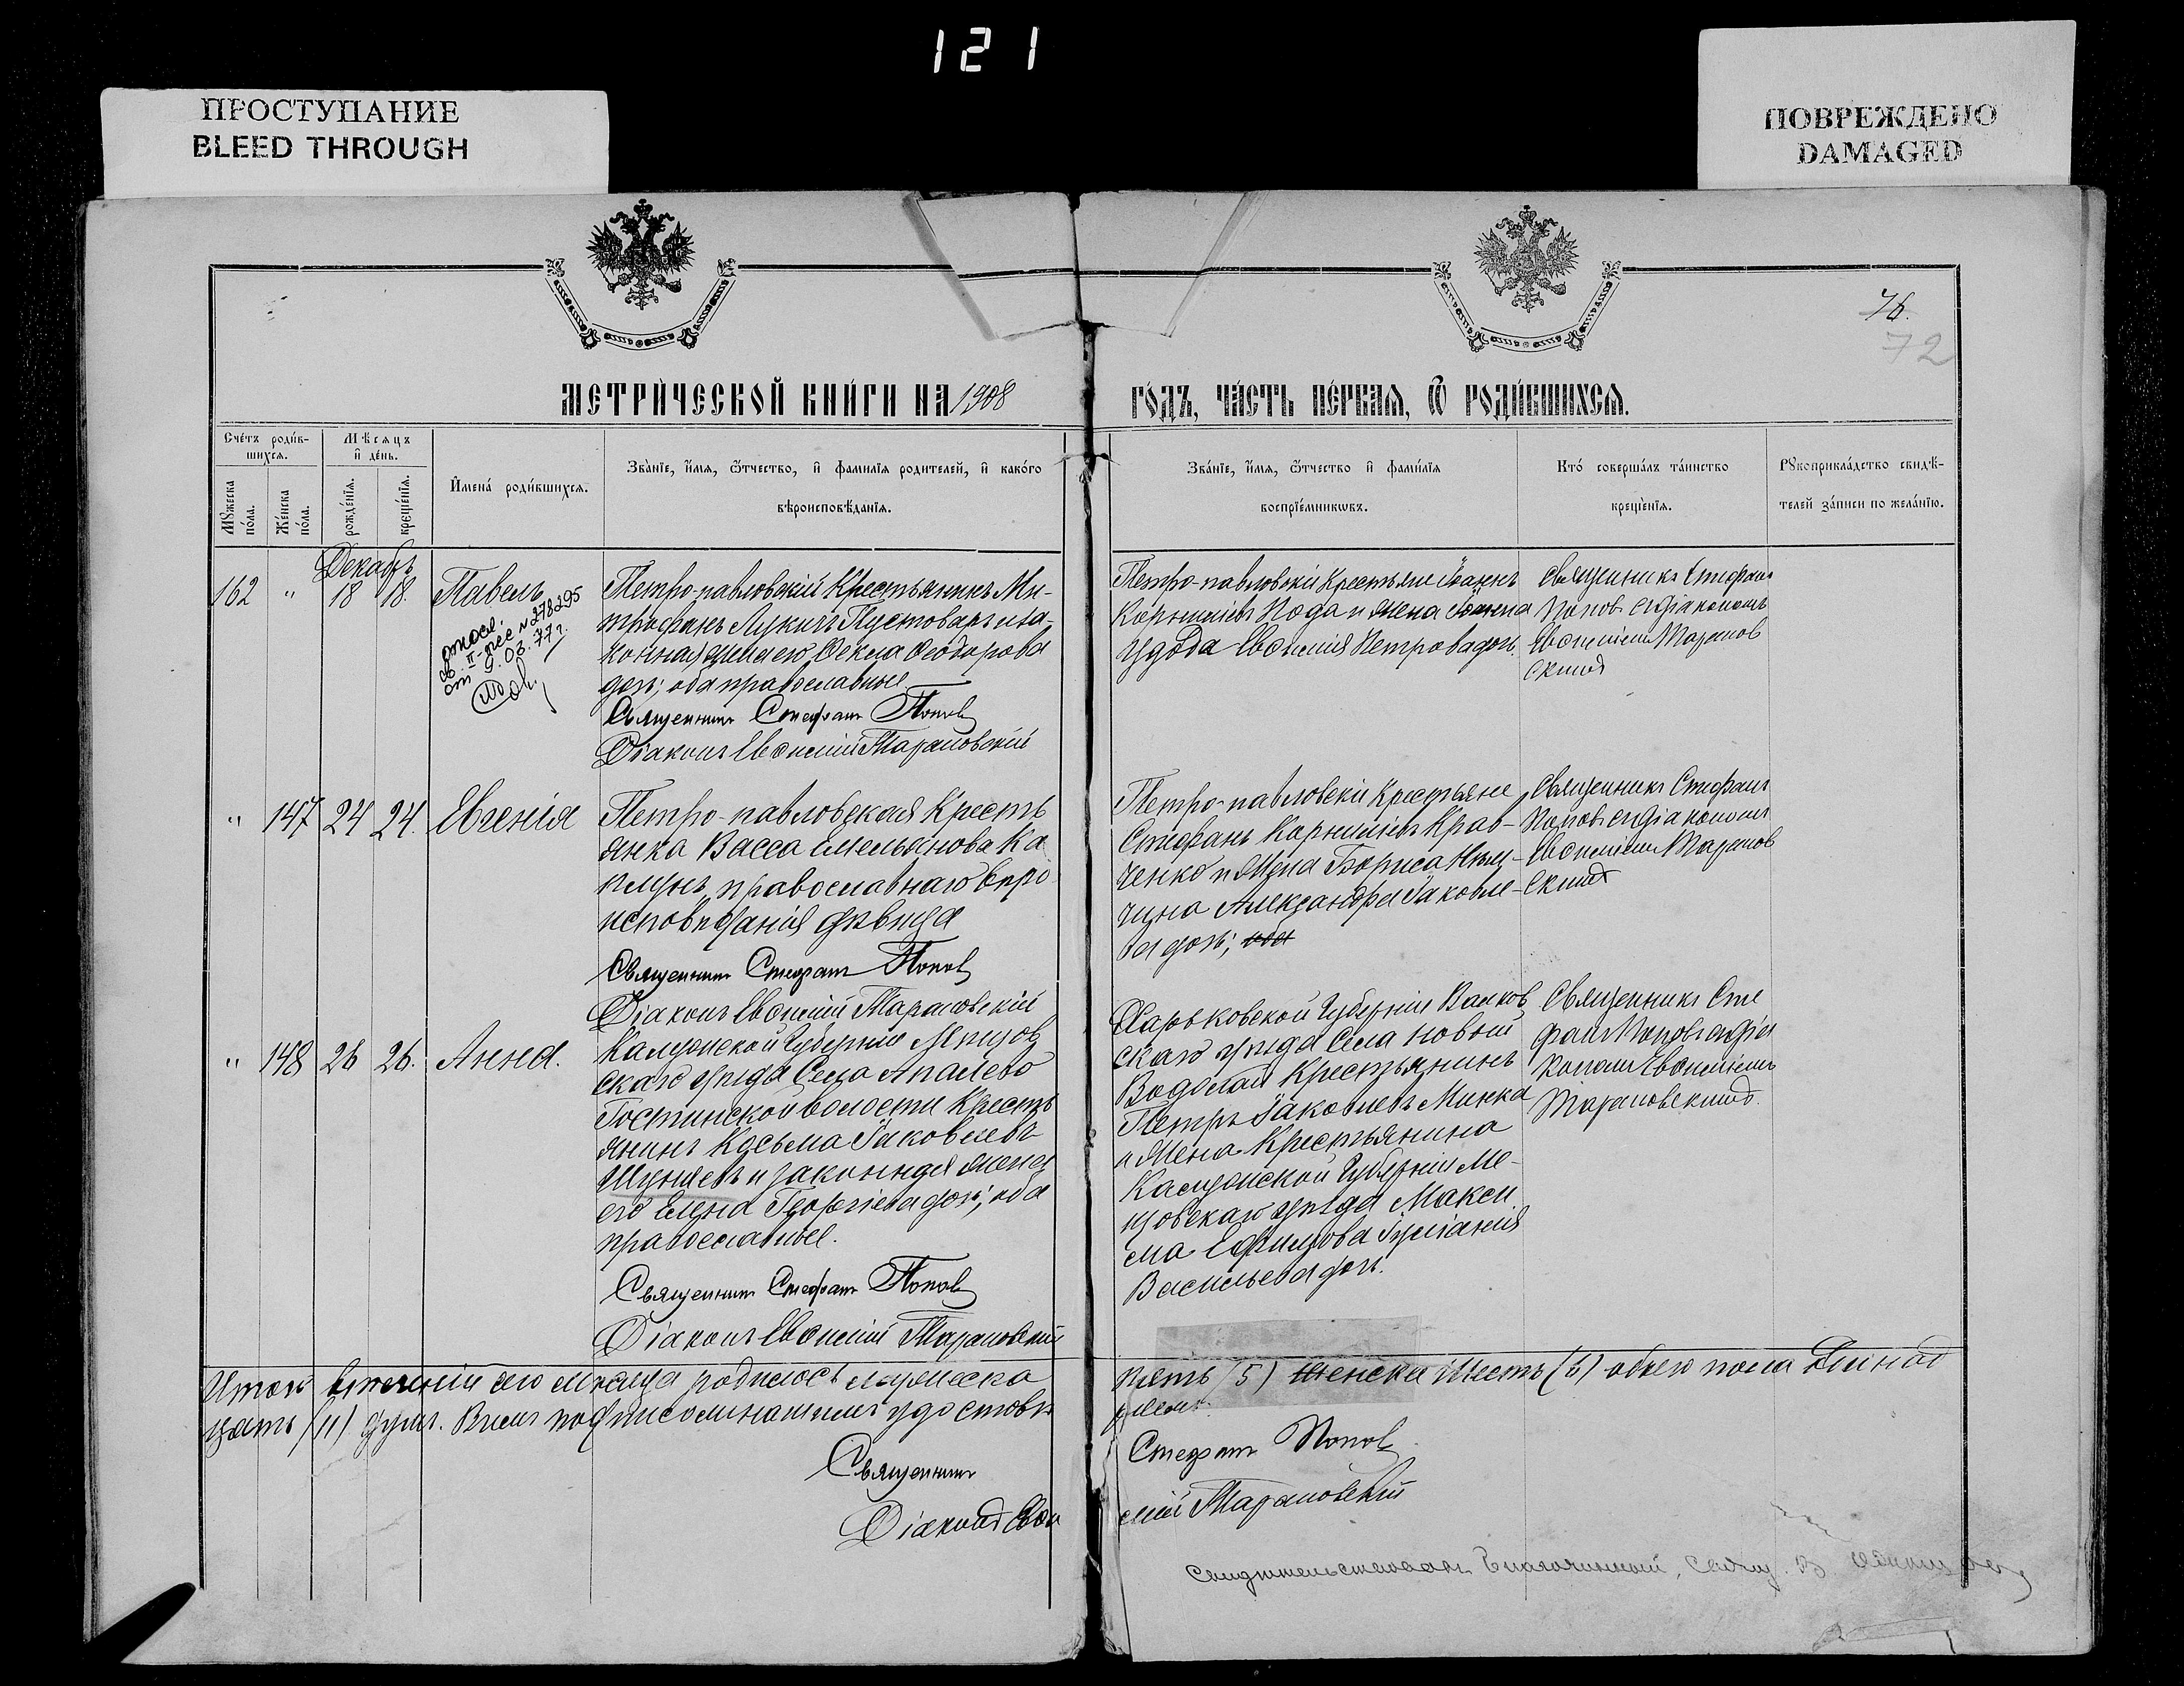 121
ПРОСТУПАНИЕ
BLEED THROUGH
ПОВРЕЖДЕНО
DAMAGED
76.
72
МЕТРИ́ЧЕСКОЙ КНИ́ГИ НА 1908
ГО́ДЪ, ЧА́СТЬ ПЕ́РВАѦ, Ѿ РОДИ́ВШИХСѦ.
Счётъ роди́в-
шихсѧ.
Мѣсѧцъ
и҆ де́нь.
Мꙋжеска по́ла.
Же́нска по́ла.
рожде́нїѧ.
креще́нїѧ.
И҆мена̀ роди́вшихсѧ.
Зва́нїе, и҆́мѧ, ѻ҆́тчество, и҆ фамилїѧ родителей, и҆ како́гѡ
вѣроисповѣ́данїѧ.
Зва́нїе, и҆́мѧ, ѻ҆́тчество и҆ фами́лїѧ
воспрїе́мникѡвъ.
Кто̀ соверша́лъ та́инство
креще́нїѧ.
Рꙋкоприкла́дство свидѣ́-
телей за́писи по жела́нїю.
Декабрь
162 " 18 18. Павелъ
отосл.
II-
№ 278295
от 9.03.77 г.
Петро-павловскій Крестьянинъ Ми-
трофанъ Лукичъ Пустоваръ и за-
конная жена его Ѳекла Ѳеодорова
дочь; оба православные
Священникъ Стефанъ Поповъ
Діаконъ Евѳимій Тарановскій
Петро-павловскіе Крестьяне Іоаннъ
Корниліевъ и жена
Евѳимія Петрова дочь.
Священникъ Стефанъ
Поповъ съ діакономъ
Евѳиміемъ Таранов
скимъ
" 147 24 24. Евгенія
Петро-павловская Кресть
янка Васса Емельянова Ка
плунъ, православнаго вѣро
исповѣданія дѣвица
Священникъ Стефанъ Поповъ
Діаконъ Евѳимій Тарановскій
Петро-павловскіе Крестьяне
Стефанъ Корниліевъ Крав-
ченко и жена Бориса
Александра Іаковле-
ва дочь; оба
Священникъ Стефанъ
Поповъ съ діакономъ
Евѳиміемъ Таранов
скимъ
" 148 26 26. Анна.
Калужской Губерніи Мещов
скаго уѣзда Села Апалево
Гостинской волости Кресть
янинъ Косьма Іаковлевъ
Шуняевъ и законная жена
его Елена Георгіева дочь; оба
православные.
Священникъ Стефанъ Поповъ
Діаконъ Евѳимій Тарановскій
Харьковской Губерніи Валков
скаго уѣзда Села Новой
Водолаги Крестьянинъ
Петръ Іаковлевъ Минка
и жена Крестьянина
Калужской Губерніи Ме-
щовскаго уѣзда Макси
ма Ефимова Іуліанія
Васильева дочь.
Священникъ Сте
фанъ Поповъ съ діа
кономъ Евѳиміемъ
Тарановскимъ.
Итого втеченіи сего мѣсяца родилось мужеска
пять (5) женска шесть (6) обоего пола одинад
цать (11) душъ. В чемъ подписомъ нашимъ удостовѣ
ряемъ.
Священникъ
Стефанъ Поповъ
Діаконъ Евѳи
мій Тарановскій
Свидѣтельствовалъ Благочинный, Свящ. В.